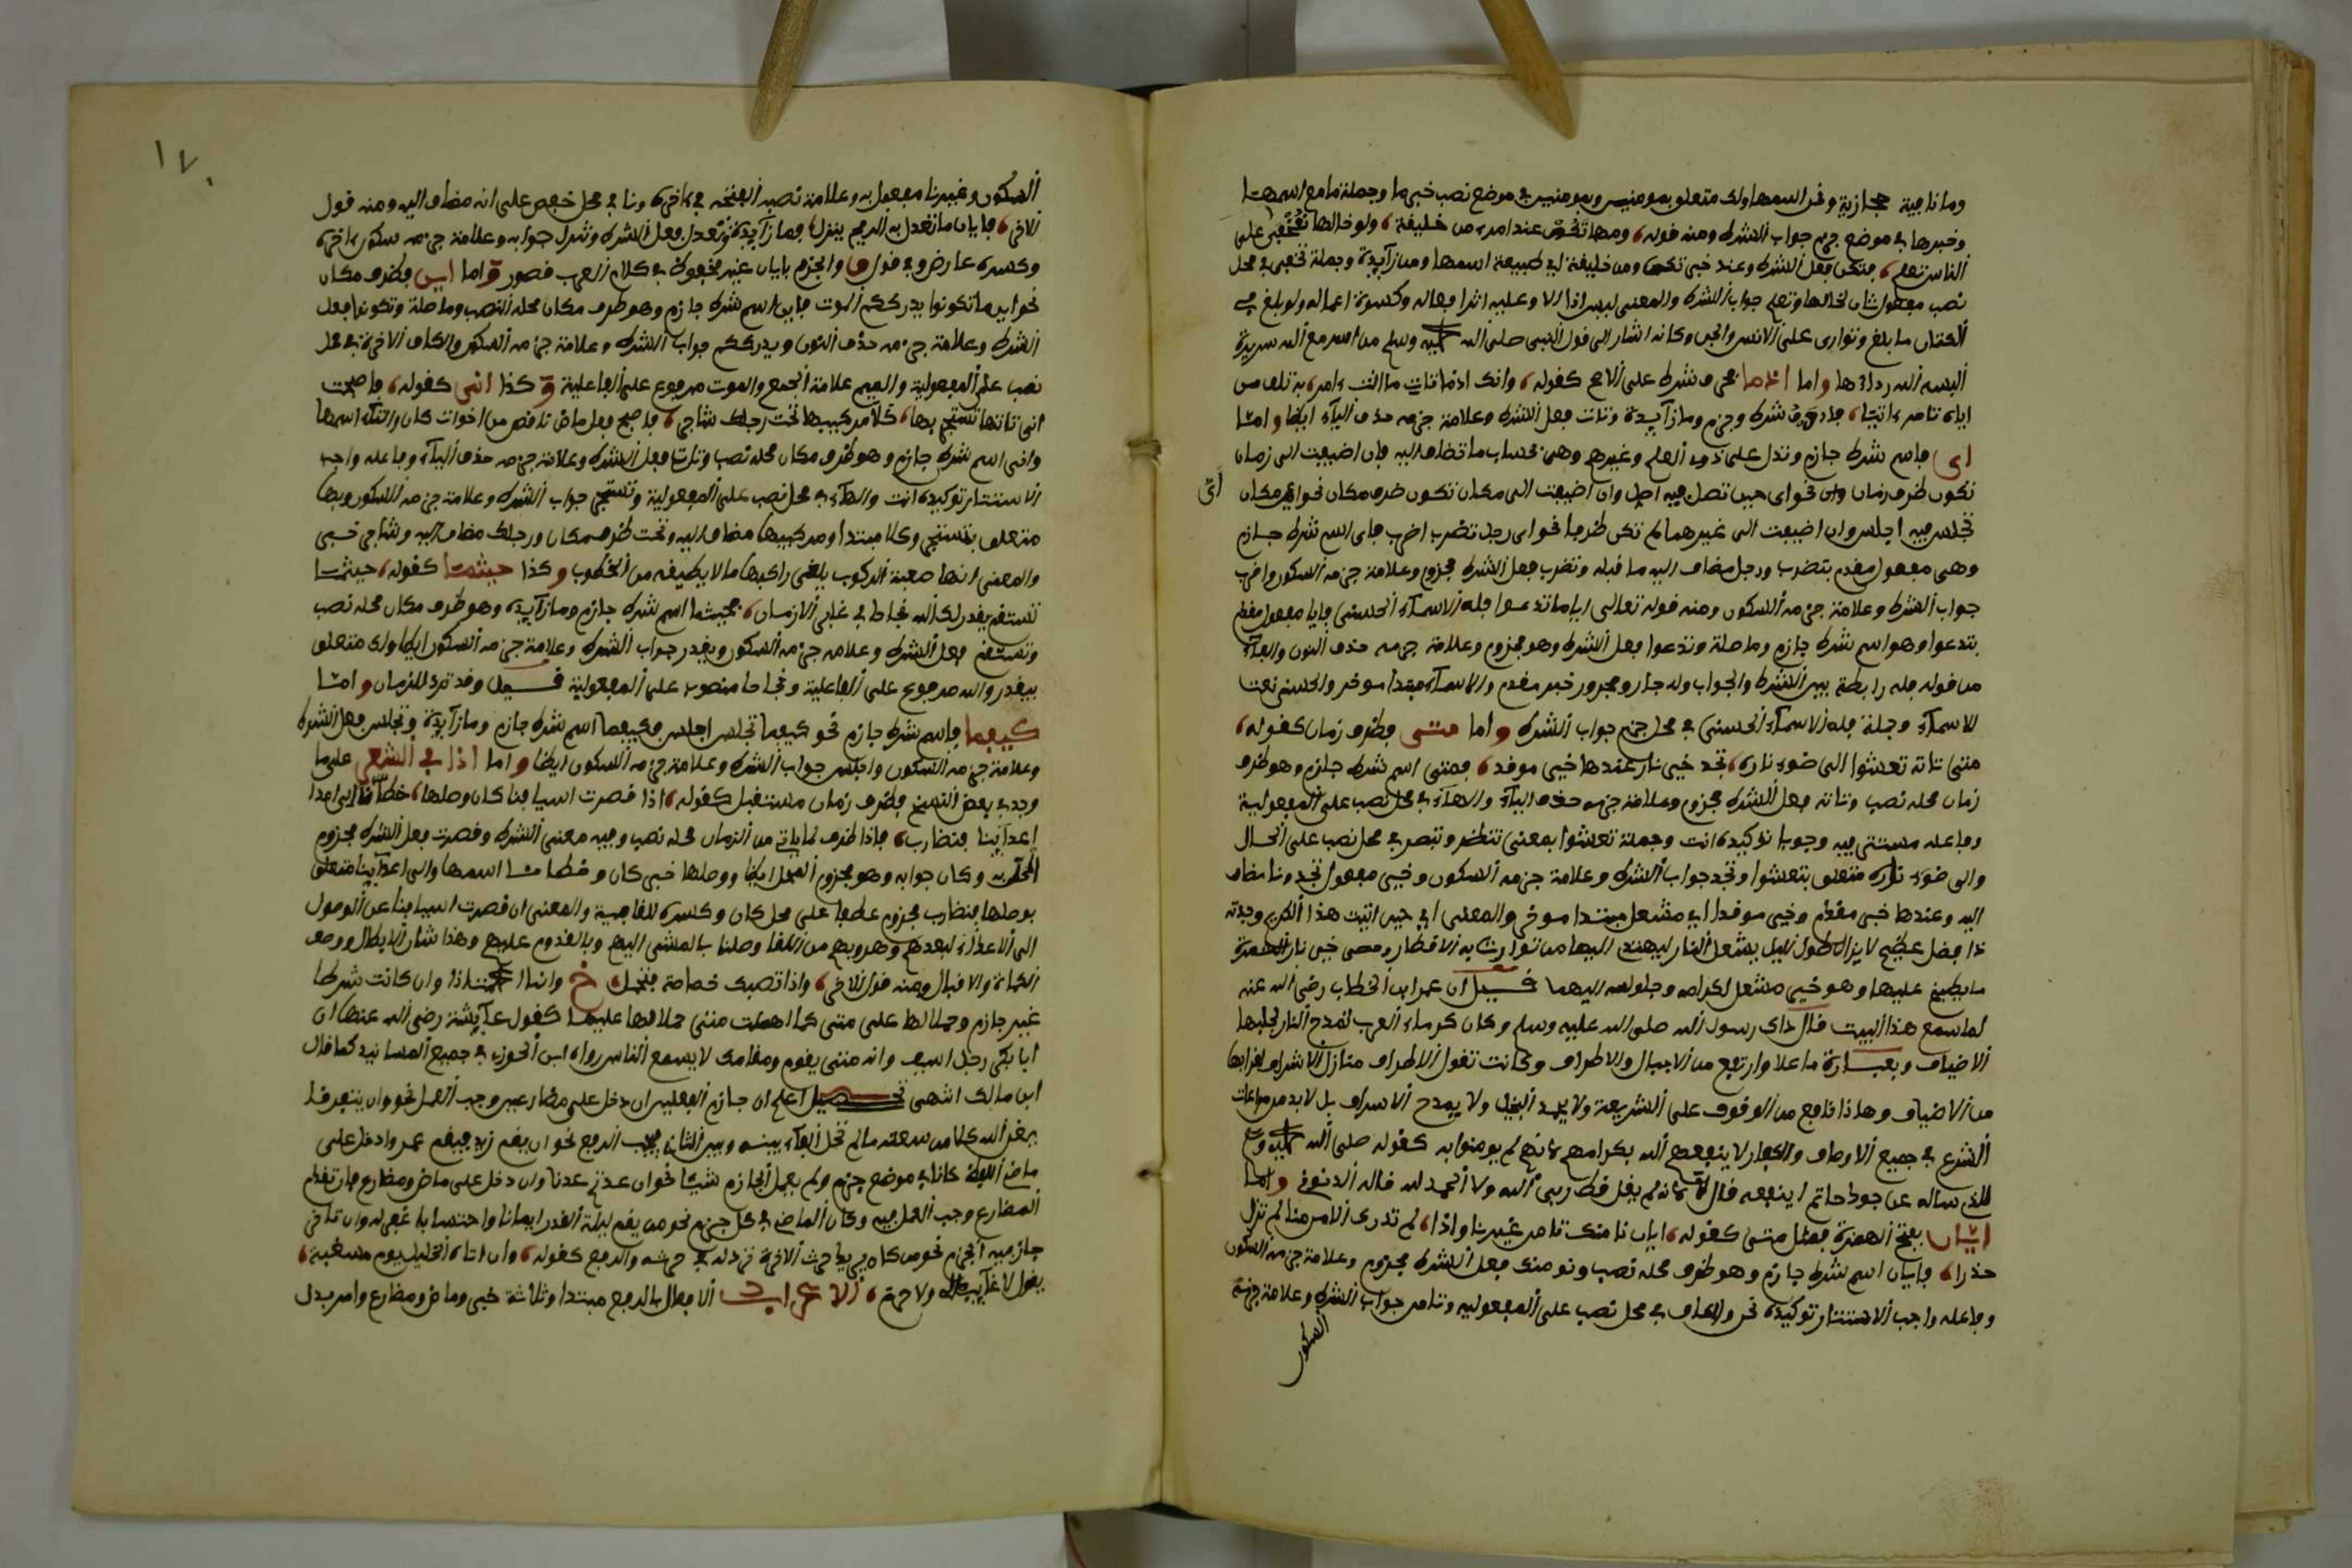 وما نافية حجازية ونحن اسمها ولك متعلق بمومنين وبمومنين في موضع نصب خبر ما وجملة ما مع اسمها
وخبرها في موضع جزم جواب الشرط ومنه قوله، ومهما تكن عند امرء من خليفة، ولو خالها تخفى على
الناس تعلم، فتكن فعل الشرط وعند خبر تكن ومن خليفة اي طبيعة اسمها ومن زآيدة وجملة تخفى في محل
نصب مفعول ثان لخالها وتعلم جواب الشرط والمعنى ليس اذا الا وعليه اثر افعاله وكسوة اعماله ولو بلغ في
الكتمان ما بلغ وتوارى على الانس والجن وكانه اشار الى قول النبي صلى الله عليه وسلم من اسر مع الله سريرة
البسه الله رداءها واما اذما فحرف شرط على الاصح كقوله، وانك اذما تات ما انت ءامر، به تلف من
اياه تامر ءاتيا، فاذ حرف شرط وجزم وما زآيدة وتات فعل الشرط وعلامة جزمه حذف اليآء ايضا واما
اي فاسم شرط جازم وتدل على ذوي العلم وغيرهم وهي بحساب ما تضاف اليه فان اضيفت الى زمان
تكون ظرف زمان نحو اي حين تصل فيه اصل وان اضيفت الى مكان تكون ظرف مكان نحو اي مكان
تجلس فيه اجلس وان اضيفت الى غيرهما لم تكن ظرفا نحو اي رجل تضرب اضرب فاي اسم شرط جازم
وهي مفعول مقدم بتضرب ورجل مضاف اليه ما قبله وتضرب فعل الشرط مجزوم وعلامة جزمه السكون واضرب
جواب الشرط وعلامة جزمه السكون ومنه قوله تعالى ايا ما تدعوا فله الاسمآء الحسنى فايا مفعول مقدم
بتدعوا وهو اسم شرط جازم وما صلة وتدعوا فعل الشرط وهو مجزوم وعلامة جزمه حذف النون والفآء
من قوله فله رابطة بين الشرط والجواب وله جار ومجرور خبر مقدم والاسمآء مبتدا موخر والحسنى نعت
للاسمآء وجملة فله الاسمآء الحسنى في محل جزم جواب الشرط واما متى فظرف زمان كقوله،
متى تاته تعشوا الى ضوء ناره، تجد خير نار عندها خير موقد، فمتى اسم شرط جازم وهو ظرف
زمان محله نصب وتاته فعل الشرط مجزوم وعلامة جزمه حذف اليآء والهآء في محل نصب على المفعولية
وفاعله مستتر فيه وجوبا توكيده انت وجملة تعشوا بمعنى تنظر وتبصر في محل نصب على الحال
والى ضوء ناره متعلق بتعشوا وتجد جواب الشرط وعلامة جزمه السكون وخير مفعول تجد ونار مضاف
اليه وعندها خبر مقدم وخير موقد اي مشعل مبتدا موخر والمعنى اي حين اتيت هذا الكريم وجدته
ذا فضل عظيم لا يزال طول الليل يشعل النار ليهتدي اليها من توارت به الاقطار
ما يطبخ عليها وهو خير مشعل لكرامه وجلوسه اليها قيل ان عمر ابن الخطاب رضي الله عنه
لما سمع هذا البيت قال ذاك رسول الله صلى الله عليه وسلم وكان كرماء العرب تمدح النار لجلبها
الاضياف وبعبارة ما علا وارتفع من الاجبال والاطراف وكانت تقول الاطراف منازل الاشراف
من الاضياف وهاذا نافع من الوقوف على الشريعة ولا يحمد البخيل ولا يمدح الاسراف بل لا بد من مراعات
الشرع في جميع الاوصاف والكفار لا ينفعهم الله بكرامهم لانهم لم يومنوا به كقوله صلى الله عليه وسلم
للذي ساله عن جود حاتم اينفعه قال لا لانه لم يقل قط ربي الله ولا الحمد لله قاله الدنوقي واما
ايان بفتح الهمزة فمثل متى كقوله، ايان نامنك تامن غيرنا واذا، لم تدرك الامن منا لم تزل
حذرا، فايان اسم شرط جازم وهو ظرف محله نصب ونومنك فعل الشرط مجزوم وعلامة جزمه السكون
وفاعله واجب الاستتار توكيده نحن والكاف في محل نصب على المفعولية وتامن جواب الشرط وعلامة جزمه
السكون
١٧٠
السكون وغيرنا مفعول به وعلامة نصبه الفتحة في ءاخره ونا في محل خفض على انه مضاف اليه ومنه قول
الاخر، فايان ما تعدل به الريح ينزل، فما زآيدة وتعدل فعل الشرط وتنزل جوابه وعلامة جزمه سكون ءاخره
وكسره عارض وفي قول والجزم بايان غير محفوظ في كلام العرب قصور واما اين فظرف مكان
نحو اين ما تكونوا يدرككم الموت فاين اسم شرط جازم وهو ظرف مكان محله النصب وما صلة وتكونوا فعل
الشرط وعلامة جزمه حذف النون ويدرككم جواب الشرط وعلامة جزمه السكون والكاف الاخيرة في محل
نصب على المفعولية والميم علامة الجمع والموت مرفوع على الفاعلية وكذا انى كقوله، فاصبحت
انى تاتها تستجر بها، كلا مركبيها تحت رجلك شاجر، فاصبح فعل ماض ناقص من اخوات كان والتآء اسمها
وانى اسم شرط جازم وهو ظرف مكان محله نصب وتات فعل الشرط وعلامة جزمه حذف اليآء وفاعله واجب
الاستتار توكيده انت والهآء في محل نصب على المفعولية وتستجر جواب الشرط وعلامة جزمه السكون وبها
متعلق بتستجر وكلا مبتدا ومركبيها مضاف اليه وتحت ظرف مكان ورجلك مضاف اليه وشاجر خبر
والمعنى انها صعبة الركوب يلقى راكبها ما لا يطيقه من الخطوب وكذا حيثما كقوله، حيثما
تستقم يقدر لك الله نجاحا في غابر الازمان، فحيثما اسم شرط جازم وما زآيدة وهو ظرف مكان محله نصب
وتستقم فعل الشرط وعلامة جزمه السكون ويقدر جواب الشرط وعلامة جزمه السكون ايضا ولك متعلق
بيقدر والله مرفوع على الفاعلية ونجاحا منصوب على المفعولية قيل وقد ترد للزمان واما
كيفما فاسم شرط جازم نحو كيفما تجلس اجلس فكيفما اسم شرط جازم وما زآيدة وتجلس فعل الشرط
وعلامة جزمه السكون واجلس جواب الشرط وعلامة جزمه السكون ايضا واما اذا في الشعر على ما
وجد في بعض النسخ فظرف زمان مستقبل كقوله، اذا قصرت اسيافنا كان وصلها، خطانا الى اعدا
اعدآئنا فنضارب، فاذا ظرف لما ياتي من الزمان محله نصب وفيه معنى الشرط وقصرت فعل الشرط مجزوم
المحل به وكان جوابه وهو مجزوم المحل ايضا ووصلها خبر كان وخطانا اسمها والى اعدآئنا متعلق
بوصلها فنضارب مجزوم عطفا على محل كان وكسره للقافية والمعنى ان قصرت اسيافنا عن الوصول
الى الاعدآء لبعدهم وهروبهم من اللقا وصلنا بالمشي اليهم وبالقدوم عليهم وهذا شان الابطال ووصف
الكماة والاقبال ومنه قول الاخر، واذا تصبك خصاصة فتجمل، خ وانما اذا وان كانت شرطا
غير جازم وحملا لها على متى كما اهملت متى حملا لها عليها كقول عآيشة رضي الله عنها ان
ابا بكر رجل اسيف وانه متى يقوم ومقامك لا يسمع الناس رواه ابن الجوزي في جميع المسانيد كما قال
ابن مالك انتهى اعلم ان جازم الفعلين ان دخل على مضارعين وجب العمل نحو وان يتفرقا
يغن الله كلا من سعته ما لم تحل الفآء بينه وبين الثاني فيجب الرفع نحو ان يقم زيد فيقم عمر وادخل على
ماض اللفظ كانا في موضع جزم ولم يعمل الجازم شيئا نحو ان عدتم عدنا وان دخل على ماض ومضارع فان تقدم
المضارع وجب العمل فيه وكان الماضي في محل جزم نحو من يقم ليلة القدر ايمانا واحتسابا غفر له وان تاخر
جاز فيه الجزم نحو من كان يريد حرث الاخرة نزد له في حرثه والرفع كقوله، وان اتاه الخليل يوم مسغبة،
يقول لا غآيب مالي ولا حرم، الاعراب الافعال بالرفع مبتدا وثلاثة خبر وماض ومضارع وامر بدل